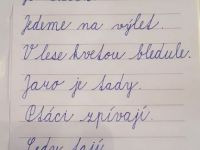 Jedeme na výlet.
V lese kvetou bledule.
Jaro je tady.
Ptáci zpívají.
Ledy tají